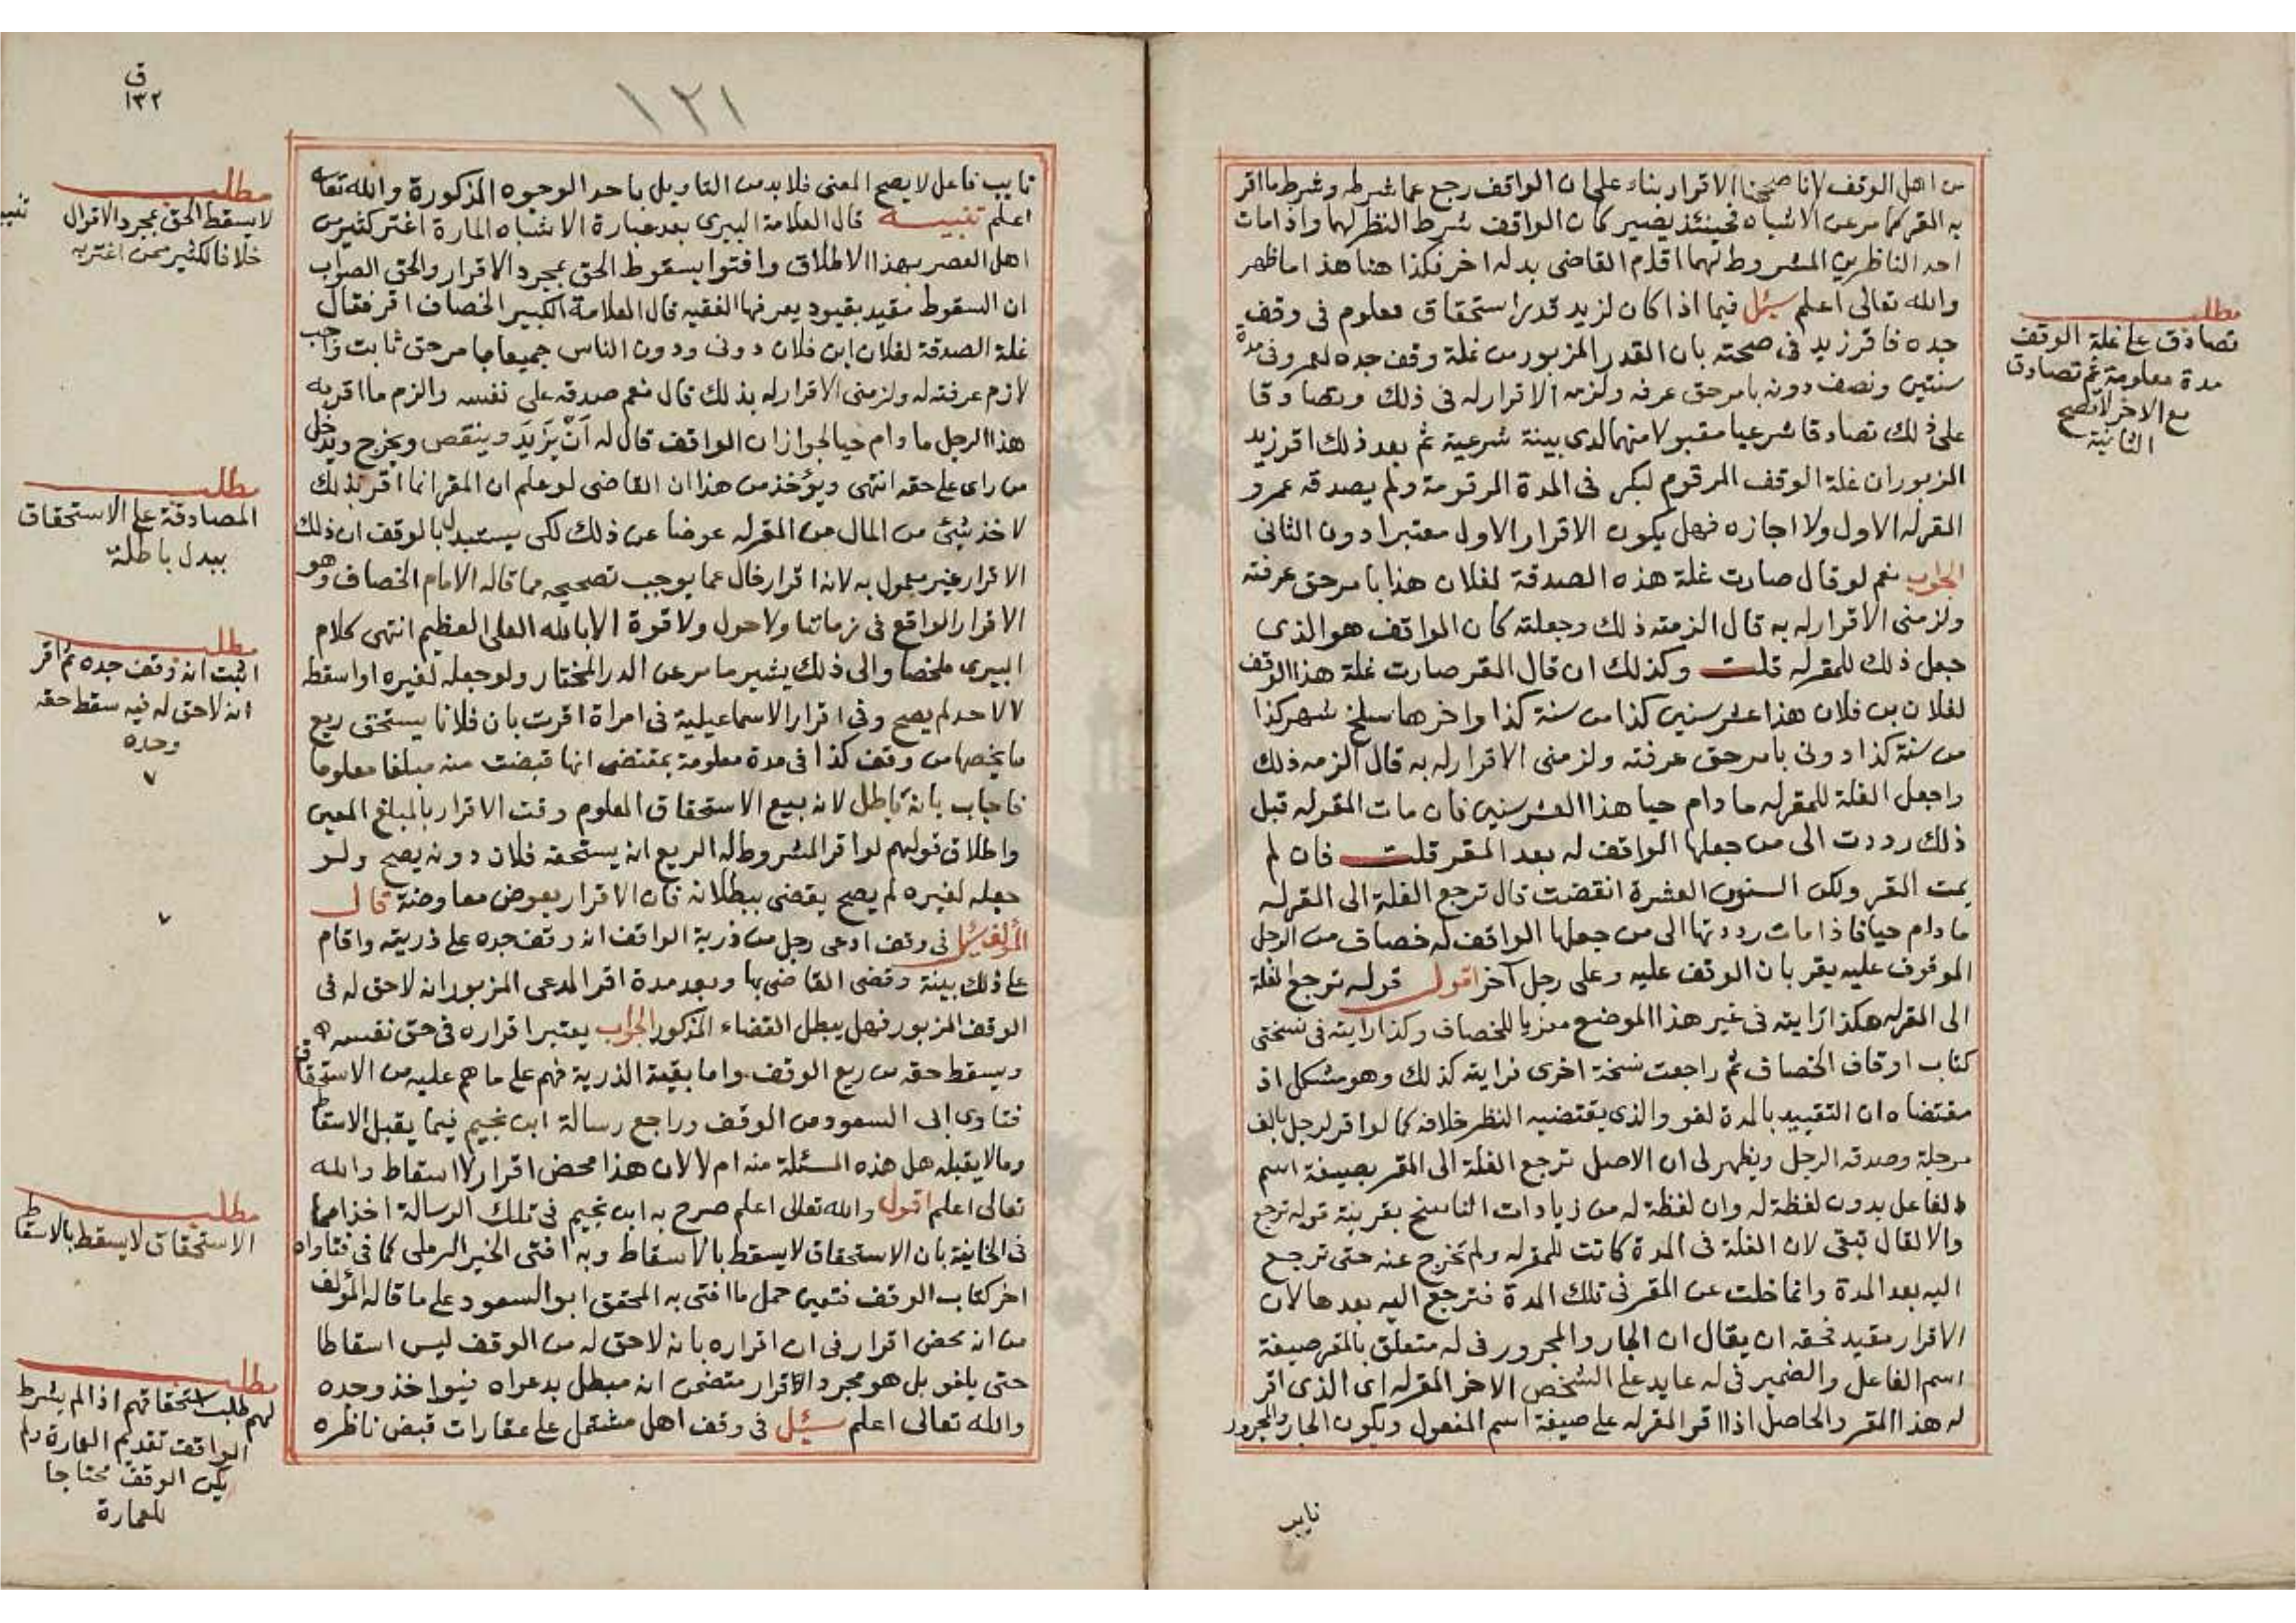 من اهل الوقف لانا صححنا الاقرار بناء على ان الواقف رجع عما شرطه وشرط ما اقر
به المقر كما مر عن الاشباه فحينئذ يصير كان الواقف شرط النظر لهما واذا مات
احد الناظرين المشروط لهما اقام القاضى بدله اخر فكذا هنا هذا ما ظهر
والله تعالى اعلم سئل فيما اذا كان لزيد قدر استحقاق معلوم فى وقف
جده فاقر زيد فى صحته بان القدر المزبور من غلة وقف جده لعمرو فى مدة
سنتين ونصف دونه بامر حق عرفه ولزمه الاقرار له فى ذلك وتصادقا
على ذلك تصادقا شرعيا مقبولا منهما لدى بينة شرعية ثم بعد ذلك اقر زيد
المزبور ان غلة الوقف المرقوم لبكر فى المدة المرقومة ولم يصدقه عمرو
المقر له الاول ولا اجازه فهل يكون الاقرار الاول معتبرا دون الثانى
الجواب نعم لو قال صارت غلة هذه الصدقة لفلان هذا بامر حق عرفته
ولزمنى الاقرار له به قال الزمته ذلك وجعلته كان الواقف هو الذى
جعل ذلك للمقر له قلت وكذلك ان قال المقر صارت غلة هذا الوقف
لفلان بن فلان هذا عشر سنين كذا من سنة كذا واخرها سلخ شهر كذا
من سنة كذا دونى بامر حق عرفته ولزمنى الاقرار له به قال الزمه ذلك
واجعل الغلة للمقر له ما دام حيا هذا العشر سنين فان مات المقر له قبل
ذلك رددت الى من جعلها الواقف له بعد المقر قلت فان لم
يمت المقر ولكن السنون العشرة انقضت قال ترجع الغلة الى المقر له
ما دام حيا فاذا مات رددتها الى من جعلها الواقف له خصاف من الرجل
الموقوف عليه يقر بان الوقف عليه وعلى رجل آخر اقول قوله ترجع الغلة
الى المقر له هكذا رايته فى غير هذا الموضع معزيا للخصاف وكذا رايته فى نسختى
كتاب اوقاف الخصاف ثم راجعت نسخة اخرى فرايته كذلك وهو مشكل اذ
مقتضاه ان التقييد بالمدة لغو والذى يقتضيه النظر خلافه كما لو اقر لرجل بالف
مرجلة وصدقه الرجل ويظهر لى ان الاصل ترجع الغلة الى المقر بصيغة اسم
الفاعل بدون لفظة له وان لفظة له من زيادات الناسخ بقرينة قوله ترجع
والا لقال تبقى لان الغلة فى المدة كانت للمقر له ولم تخرج عنه حتى ترجع
اليه بعد المدة وانما خلت عن المقر فى تلك المدة فترجع اليه بعدها لان
الاقرار مقيد فحقه ان يقال ان الجار والمجرور فى له متعلق بالمقر صيغة
اسم الفاعل والضمير فى له عايد على الشخص الاخر المقر له اى الذى اقر
له هذا المقر والحاصل اذا اقر المقر له على صيغة اسم المفعول ويكون الجار والمجرور
نايب
مطلب
تصادق على غلة الوقف
مدة معلومة ثم تصادق
مع الاخر لا تصح
الثانية
١٢١
ق
١٣٢
نايب فاعل لا يصح المعنى فلا بد من التاويل باحد الوجوه المذكورة والله تعالى
اعلم تنبيه قال العلامة البيرى بعد عبارة الاشباه المارة اغتر كثير من
اهل العصر بهذا الاطلاق وافتوا بسقوط الحق بمجرد الاقرار والحق الصواب
ان السقوط مقيد بقيود يعرفها الفقيه قال العلامة الكبير الخصاف اقر فقال
غلة الصدقة لفلان ابن فلان دونى ودون الناس جميعا بامر حق ثابت واجب
لازم عرفته له ولزمنى الاقرار له بذلك قال نعم صدقه على نفسه والزم ما اقر به
هذا الرجل ما دام حيا لجواز ان الواقف قال له اَنْ يَزيدَ وينقص ويخرج ويدخل
من راى على حقه انتهى ويؤخذ من هذا ان القاضى لو علم ان المقر انما اقر بذلك
لاخذ شيئ من المال من المقر له عوضا عن ذلك لكى يستبدل بالوقف ان ذلك
الاقرار غير معمول به لانه اقرار خال عما يوجب تصحيحه مما قاله الامام الخصاف وهو
الاقرار الواقع فى زماننا ولا حول ولا قوة الا بالله العلى العظيم انتهى كلام
البيرى ملخصا والى ذلك يشير ما مر عن الدر المختار ولو جعله لغيره او اسقطه
لا لاحد لم يصح وفى اقرار الاسماعيلية فى امراة اقرت بان فلانا يستحق ريع
ما يخصها من وقف كذا فى مدة معلومة بمقتضى انها قبضت منه مبلغا معلوما
فاجاب بانه باطل لانه بيع الاستحقاق المعلوم وقت الاقرار بالمبلغ المعين
واطلاق قولهم لو اقر المشروط له الريع انه يستحقه فلان دونه يصح ولو
جعله لغيره لم يصح يقضى ببطلانه فان الاقرار بعوض معاوضة قال
المؤلف سئل فى وقف ادعى رجل من ذرية الواقف انه وقف جده على ذريته واقام
على ذلك بينة وقضى القاضى بها وبعد مدة اقر المدعى المزبور انه لاحق له فى
الوقف المزبور فهل يبطل القضاء المذكور الجواب يعتبر اقراره فى حق نفسه
ويسقط حقه من ريع الوقف واما بقية الذرية فهم على ما هم عليه من الاستحقاق
فتاوى ابى السعود من الوقف وراجع رسالة ابن نجيم فيما يقبل الاسقاط
وما لا يقبله هل هذه المسئلة منه ام لا لان هذا محض اقرار لا اسقاط والله
تعالى اعلم اقول والله تعالى اعلم صرح به ابن نجيم فى تلك الرسالة اخذا مما
فى الخانية بان الاستحقاق لا يسقط بالاسقاط وبه افتى الخير الرملى كما فى فتاواه
اخر كتاب الوقف فتعين حمل ما افتى به المحقق ابو السعود على ما قاله المؤلف
من انه محض اقرار فى ان اقراره بانه لاحق له من الوقف ليس اسقاطا
حتى يلغو بل هو مجرد اقرار متضمن انه مبطل بدعواه فيواخذ وحده
والله تعالى اعلم سئل فى وقف اهل مشتمل على عقارات قبض ناظره
مطلب
لا يسقط الحق بمجرد الاقرار
خلافا لكثير ممن اغتر به
مطلب
المصادقة على الاستحقاق
ببدل باطلة
مطلب
اثبت انه وقف جده ثم اقر
انه لاحق له فيه سقط حقه
وحده
مطلب
الاستحقاق لا يسقط بالاسقاط
مطلب
لهم طلب استحقاقهم اذا لم يشرط
الواقف تقديم العمارة ولم
يكن الوقف محتاجا
للعمارة